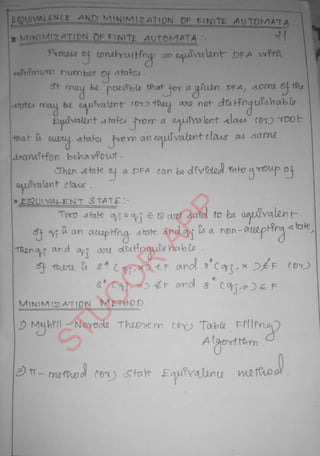 EQUIVALENCE AND MINIMIZATION OF FINITE AUTOMATA
21
* MINIMIZATION OF FINITE AUTOMATA :-
Process of constructing an equivalent DFA with
minimum number of states.
It may be possible that for a given DFA, some of the
states may be equivalent (or) they are not distinguishable
Equivalent states from a equivalent class (or) root
that is every states from an equivalent class as same
transition behaviour.
Then state of a DFA can be divided into group of
equivalent class.
* EQUIVALENT STATE :-
Two state qi, qj ∈ Q are said to be equivalent
If qi is an accepting state and qj is a non-accepting state,
Then qi and qj are distinguishable.
If there is δ* (qi, x) ∈ F and δ* (qj, x) ∉ F (or)
δ* (qi, x) ∉ F and δ* (qj, x) ∈ F
MINIMIZATION METHOD
1) Myhill - Nerode Theorem (or) Table Filling
Algorithm.
2) π - method (or) State Equivalence method.
STUCOR APP